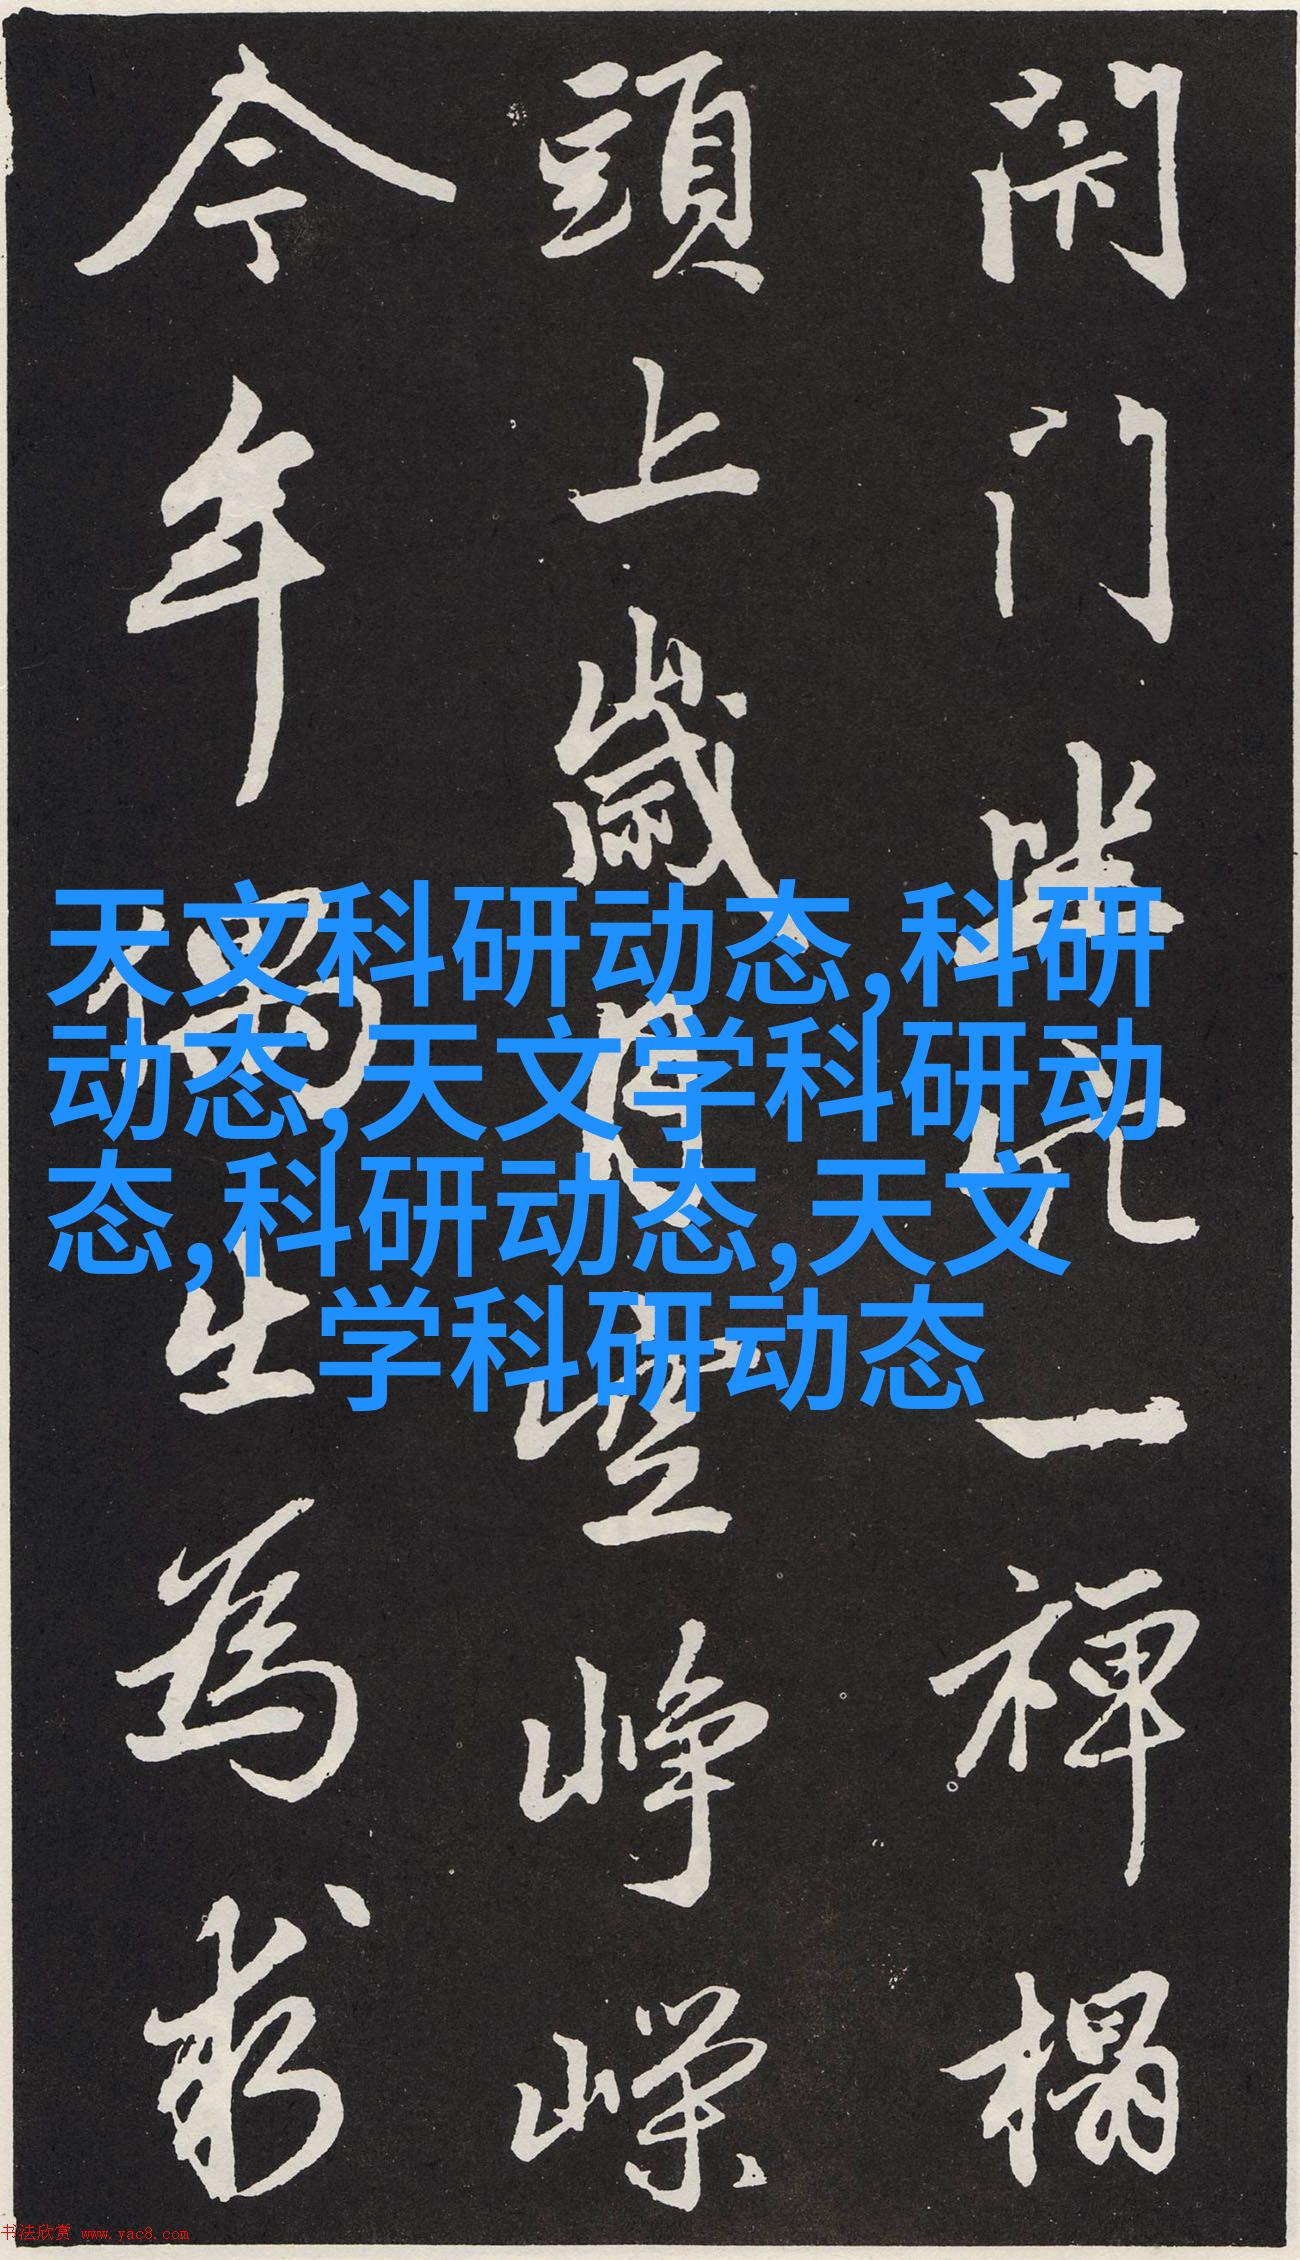 閉門坐穴一禪榻
頭上歲月空崢嶸
今年偶出為求
天文科研动态,科研
动态,天文学科研动
态,科研动态,天文
学科研动态
书法欣赏 www.yac8.com